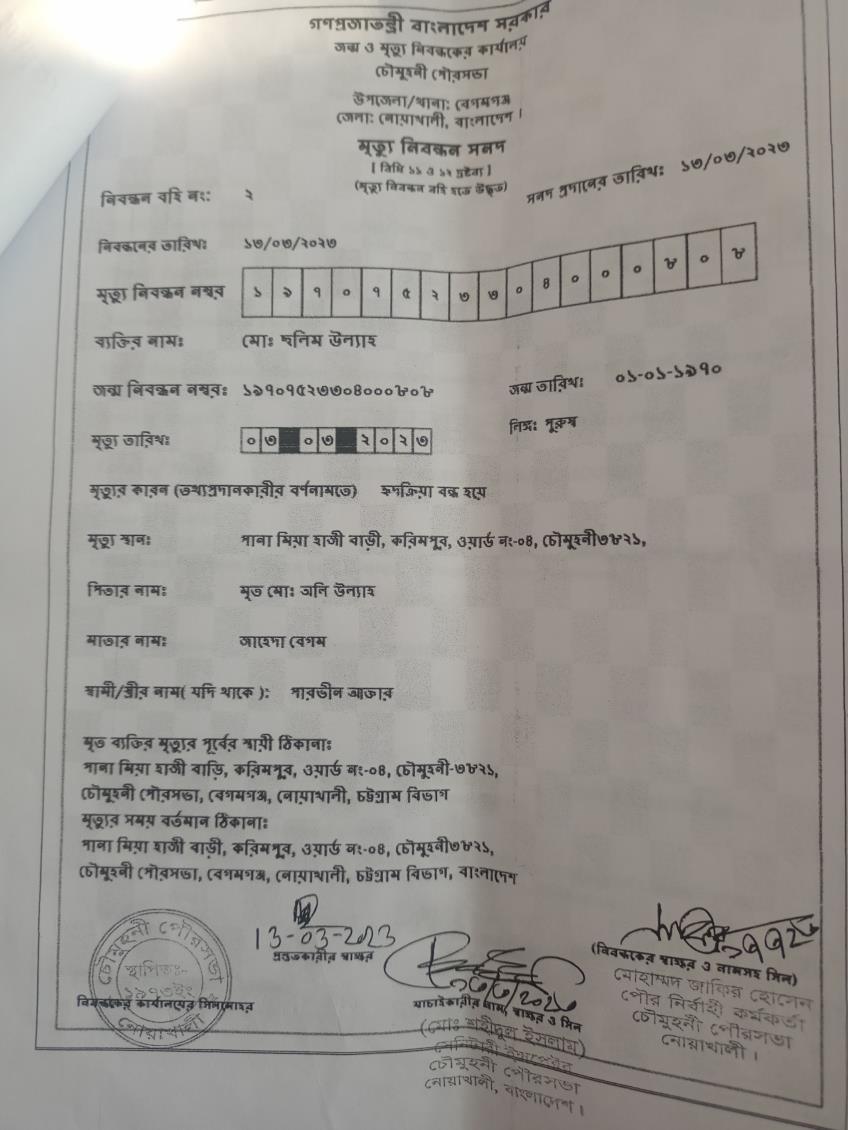 গণপ্রজাতন্ত্রী বাংলাদেশ সরকার
জন্ম ও মৃত্যু নিবন্ধকের কার্যালয়
চৌমুহনী পৌরসভা
উপজেলা/থানা: বেগমগঞ্জ
জেলা: নোয়াখালী, বাংলাদেশ।
মৃত্যু নিবন্ধন সনদ
[ বিধি ১১ ও ১২ দ্রষ্টব্য ]
(মৃত্যু নিবন্ধন বহি হতে উদ্ধৃত)
নিবন্ধন বহি নং: ২
সনদ প্রদানের তারিখ: ১৩/০৩/২০২৩
নিবন্ধনের তারিখ: ১৩/০৩/২০২৩
মৃত্যু নিবন্ধন নম্বর ১ ৯ ৭ ০ ৭ ৫ ২ ৩ ৩ ০ ৪ ০ ০ ০ ৮ ০ ৮
ব্যক্তির নাম: মোঃ ছলিম উল্যাহ
জন্ম নিবন্ধন নম্বর: ১৯৭০৭৫২৩৩০৪০০০৮০৮ জন্ম তারিখ: ০১-০১-১৯৭০
মৃত্যু তারিখ: ০৩ ০৩ ২০২৩ লিঙ্গ: পুরুষ
মৃত্যুর কারন (তথ্যপ্রদানকারীর বর্ণনামতে) হৃদক্রিয়া বন্ধ হয়ে
মৃত্যু স্থান: পানা মিয়া হাজী বাড়ী, করিমপুর, ওয়ার্ড নং-০৪, চৌমুহনী৩৮২১,
পিতার নাম: মৃত মোঃ অলি উল্যাহ
মাতার নাম: জাহেদা বেগম
স্বামী/স্ত্রীর নাম( যদি থাকে ): পারভীন আক্তার
মৃত ব্যক্তির মৃত্যুর পূর্বের স্থায়ী ঠিকানা:
পানা মিয়া হাজী বাড়ি, করিমপুর, ওয়ার্ড নং-০৪, চৌমুহনী-৩৮২১,
চৌমুহনী পৌরসভা, বেগমগঞ্জ, নোয়াখালী, চট্টগ্রাম বিভাগ
মৃত্যুর সময় বর্তমান ঠিকানা:
পানা মিয়া হাজী বাড়ী, করিমপুর, ওয়ার্ড নং-০৪, চৌমুহনী৩৮২১,
চৌমুহনী পৌরসভা, বেগমগঞ্জ, নোয়াখালী, চট্টগ্রাম বিভাগ, বাংলাদেশ
চৌমুহনী পৌরসভা
স্থাপিত:-
১৯৭৩ইং
নোয়াখালী
নিবন্ধকের কার্যালয়ের সিলমোহর
13-03-2023
প্রস্তুতকারীর স্বাক্ষর
যাচাইকারীর নাম, স্বাক্ষর ও সিল
(মোঃ শহীদুল ইসলাম)
চৌমুহনী পৌরসভা
নোয়াখালী, বাংলাদেশ।
(নিবন্ধকের স্বাক্ষর ও নামসহ সিল)
মোহাম্মদ জাকির হোসেন
পৌর নির্বাহী কর্মকর্তা
চৌমুহনী পৌরসভা
নোয়াখালী।